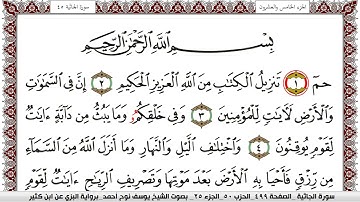 سورة الجاثية ٤٥ الجزء الخامس والعشرون
بِسْمِ اللَّهِ الرَّحْمَٰنِ الرَّحِيمِ
حمٓ ١ تَنزِيلُ الْكِتَابِ مِنَ اللَّهِ الْعَزِيزِ الْحَكِيمِ ٢ إِنَّ فِي السَّمَٰوَٰتِ
وَالْأَرْضِ لَءَايَٰتٍ لِّلْمُؤْمِنِينَ ٣ وَفِي خَلْقِكُمُۥ وَمَا يَبُثُّ مِن دَآبَّةٍ ءَايَٰتٌ
لِّقَوْمٍ يُوقِنُونَ ٤ وَاخْتِلَٰفِ الَّيْلِ وَالنَّهَارِ وَمَا أَنزَلَ اللَّهُ مِنَ السَّمَآءِ
مِن رِّزْقٍ فَأَحْيَا بِهِ الْأَرْضَ بَعْدَ مَوْتِهَا وَتَصْرِيفِ الرِّيَٰحِ ءَايَٰتٌ لِّقَوْمٍ
سورة الجاثية الصفحة ٤٩٩ الحزب ٥٠ الجزء ٢٥ بصوت الشيخ يوسف نوح أحمد برواية البزي عن ابن كثير